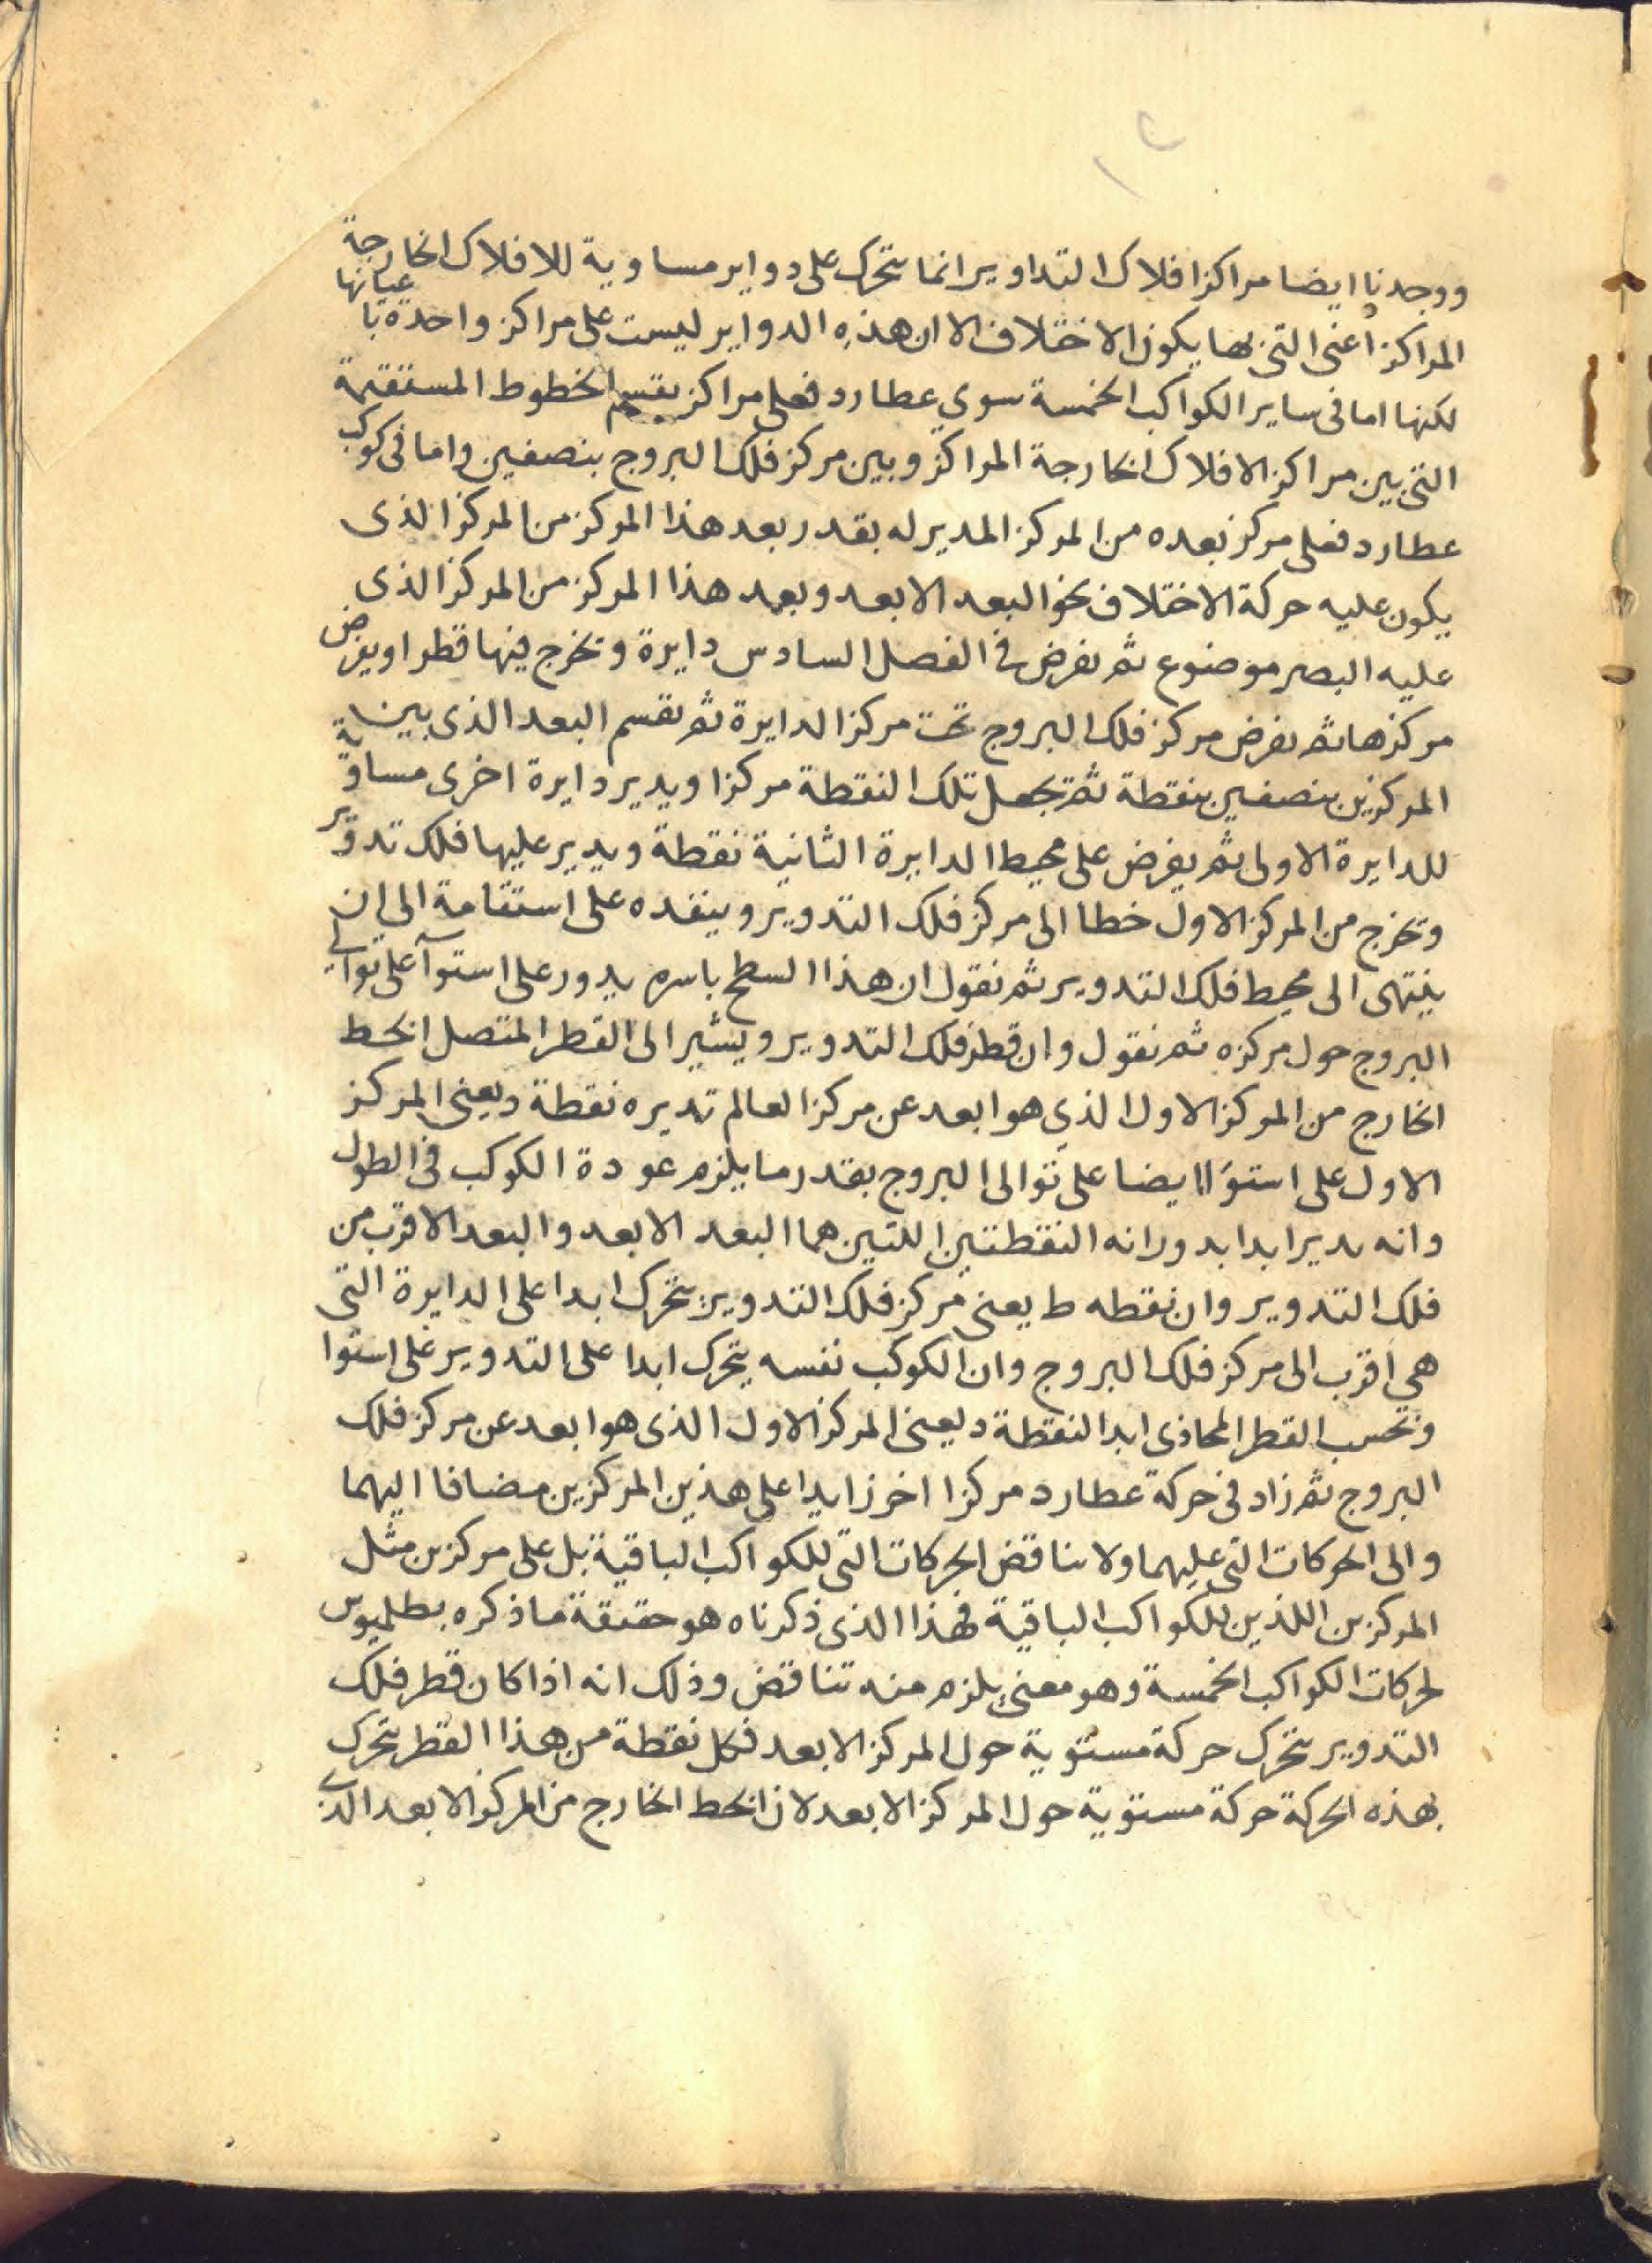 ووجدنا ايضا مراكز افلاك التداوير انما تتحرك على دواير مساوية للافلاك الخارجة
المراكز اعنى التى بها يكون الاختلاف الا ان هذه الدواير ليست على مراكز واحدة باعيانها
لكنها اما فى ساير الكواكب الخمسة سوي عطارد فعلى مراكز يقسم الخطوط المستقيمة
التى بين مراكز الافلاك الخارجة المراكز وبين مركز فلك البروج بنصفين واما فى كوكب
عطارد فعلى مركز بعده من المركز المدير له بقدر بعد هذا المركز من المركز الذى
يكون عليه حركة الاختلاف نحو البعد الابعد وبعد هذا المركز من المركز الذى
عليه البصر موضوع ثم نفرض فى الفصل السادس دايرة وتخرج فيها قطرا ويفرض
مركزها ثم نفرض مركز فلك البروج تحت مركز الدايرة ثم نقسم البعد الذى بين
المركزين بنصفين بنقطة ثم تجعل تلك النقطة مركزا ويدير دايرة اخرى مساوية
للدايرة الاولى ثم يفرض على محيط الدايرة الثانية نقطة ويدير عليها فلك تدوير
وتخرج من المركز الاول خطا الى مركز فلك التدوير وينفده على استقامة الى ان
ينتهى الى محيط فلك التدوير ثم نقول ان هذا السطح باسره يدور على استوآ على توالى
البروج حول مركزه ثم نقول وان قطر فلك التدوير ويشير الى القطر المتصل الخط
الخارج من المركز الاول الذي هو ابعد عن مركز العالم تديره نقطة د يعنى المركز
الاول على استوٓاا ايضا على توالى البروج بقدر ما يلزم عودة الكوكب فى الطول
وانه يدير ابدا بدورانه النقطتين اللتين هما البعد الابعد والبعد الاقرب من
فلك التدوير وان نقطه ط يعنى مركز فلك التدوير يتحرك ابدا على الدايرة التى
هي اقرب الى مركز فلك البروج وان الكوكب نفسه يتحرك ابدا على التدوير على استوا
ونحسب القطر المحاذى ابدا لنقطة د يعنى المركز الاول الذى هو ابعد عن مركز فلك
البروج ثم زاد فى حركة عطارد مركزا اخر زايدا على هذين المركزين مضافا اليهما
والى الحركات التى عليهما ولا يناقض الحركات التى للكواكب الباقية بل على مركزين مثل
المركزين اللذين للكواكب الباقية فهذا الذى ذكرناه هو حقيقة ما ذكره بطلميوس
لحركات الكواكب الخمسة وهو معنى يلزم منه تناقض وذلك انه اذا كان قطر فلك
التدوير يتحرك حركة مستوية حول المركز الابعد فكل نقطة من هذا القطر يتحرك
بهذه الحركة حركة مستوية حول المركز الابعد لان الخط الخارج من المركز الابعد الذى